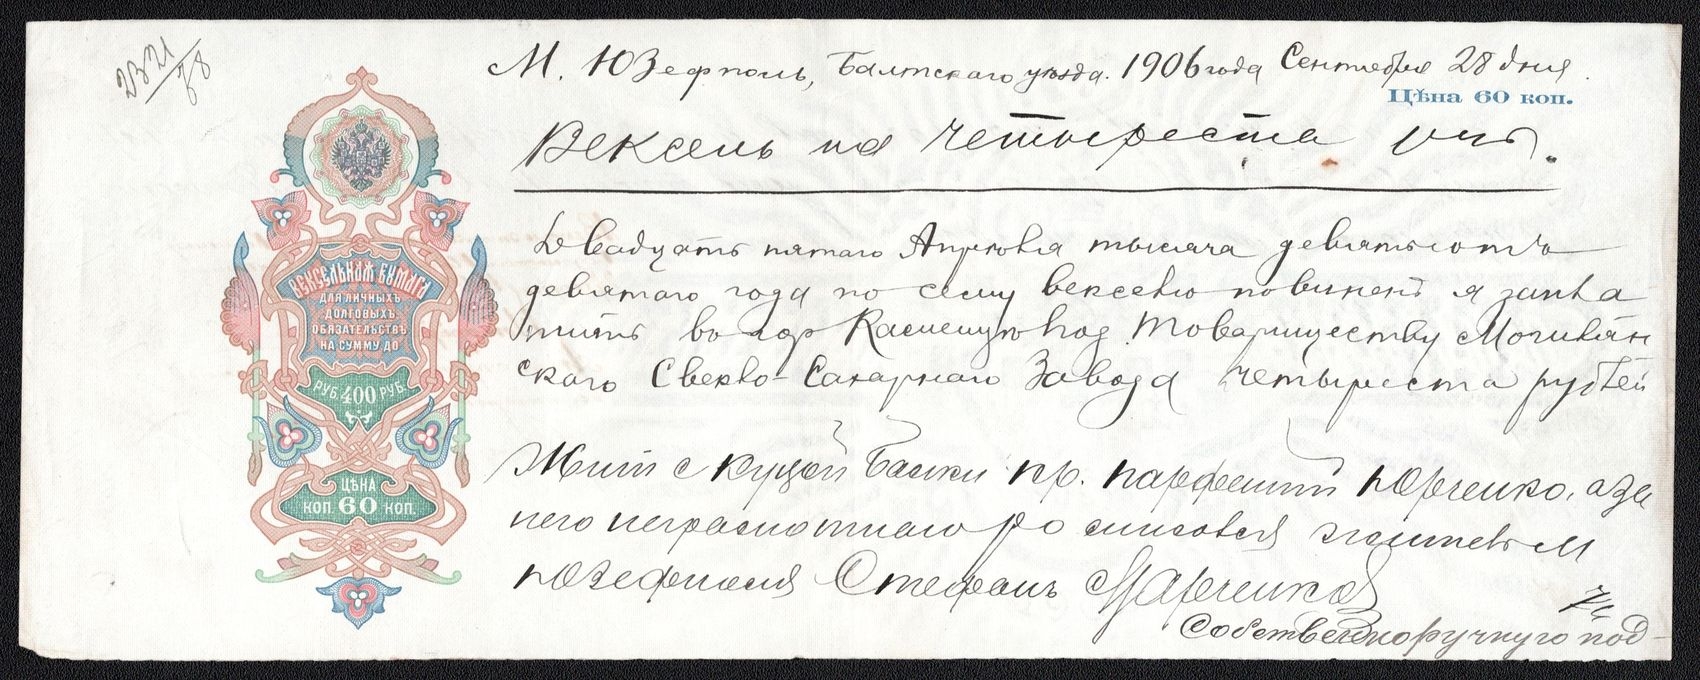 2321/78
М. Юзефполь, Балтскаго уѣзда. 1906 года Сентября 28 дня.
Цѣна 60 коп.
Вексель на четыреста руб.
ВЕКСЕЛЬНАЯ БУМАГА
ДЛЯ ЛИЧНЫХЪ
ДОЛГОВЫХЪ
ОБЯЗАТЕЛЬСТВЪ
НА СУММУ ДО
РУБ. 400 РУБ.
ЦѢНА
КОП. 60 КОП.
Двадцать пятаго Апрѣля тысяча девятьсотъ
девятаго года по сему векселю повиненъ я запла
тить въ гор Товариществу Могилян
скаго Свекло-Сахарнаго Завода четыреста рублей
Жит с Балки кр. Парфений Юрченко, а за
него неграмотнаго росписовся жителъ м
Юзефполя Стефанъ Марченко
Собственноручную под-